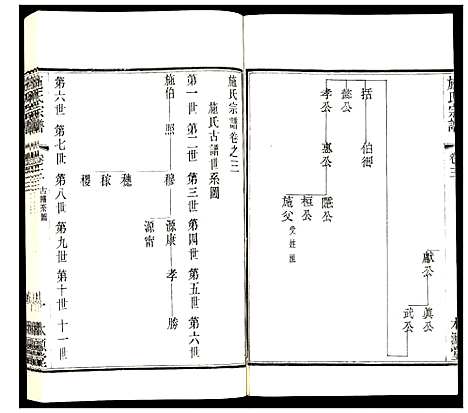 施氏宗譜
卷三
獻公
真公
武公
括
伯御
懿公
孝公
惠公
隱公
桓公
施父 受姓祖
施氏宗譜卷之三
施氏古譜世系圖
第一世 第二世 第三世 第四世 第五世 第六世
施伯 照 穆 源康 孝 勝
源甯
穗
稼
稷
第六世 第七世 第八世 第九世 第十世 十一世
施氏宗譜
卷三
古譜世系圖